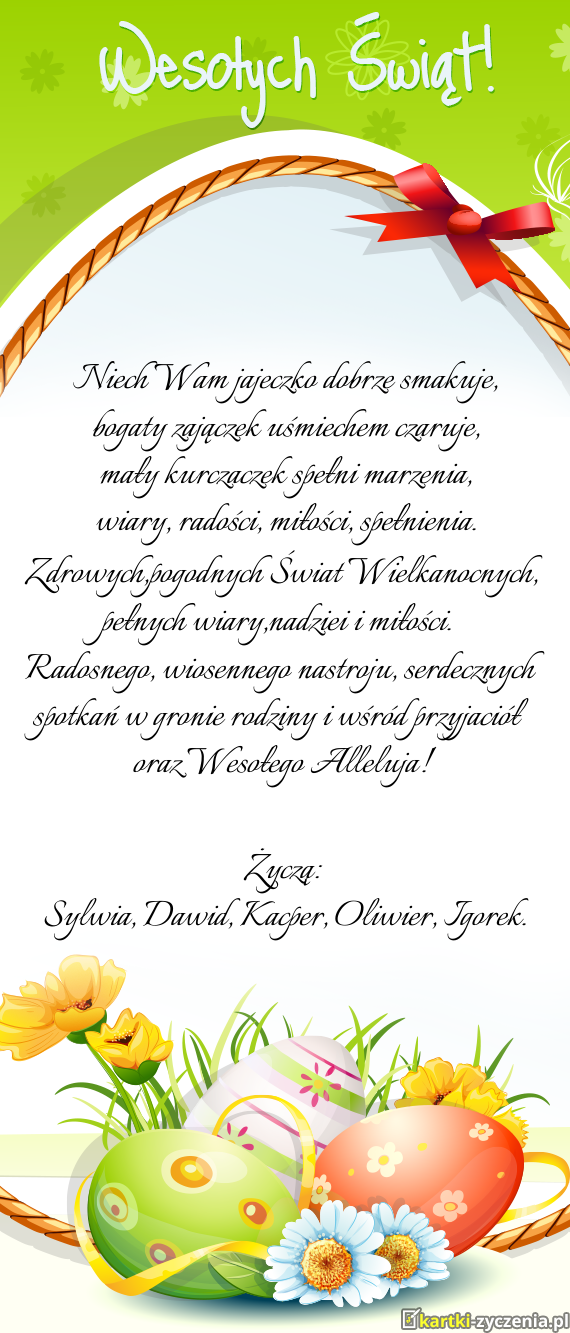 Wesołych Świąt!
Niech Wam jajeczko dobrze smakuje,
bogaty zajączek uśmiechem czaruje,
mały kurczaczek spełni marzenia,
wiary, radości, miłości, spełnienia.
Zdrowych,pogodnych Świat Wielkanocnych,
pełnych wiary,nadziei i miłości.
Radosnego, wiosennego nastroju, serdecznych
spotkań w gronie rodziny i wśród przyjaciół
oraz Wesołego Alleluja!
Życzą:
Sylwia, Dawid, Kacper, Oliwier, Igorek.
kartki-zyczenia.pl